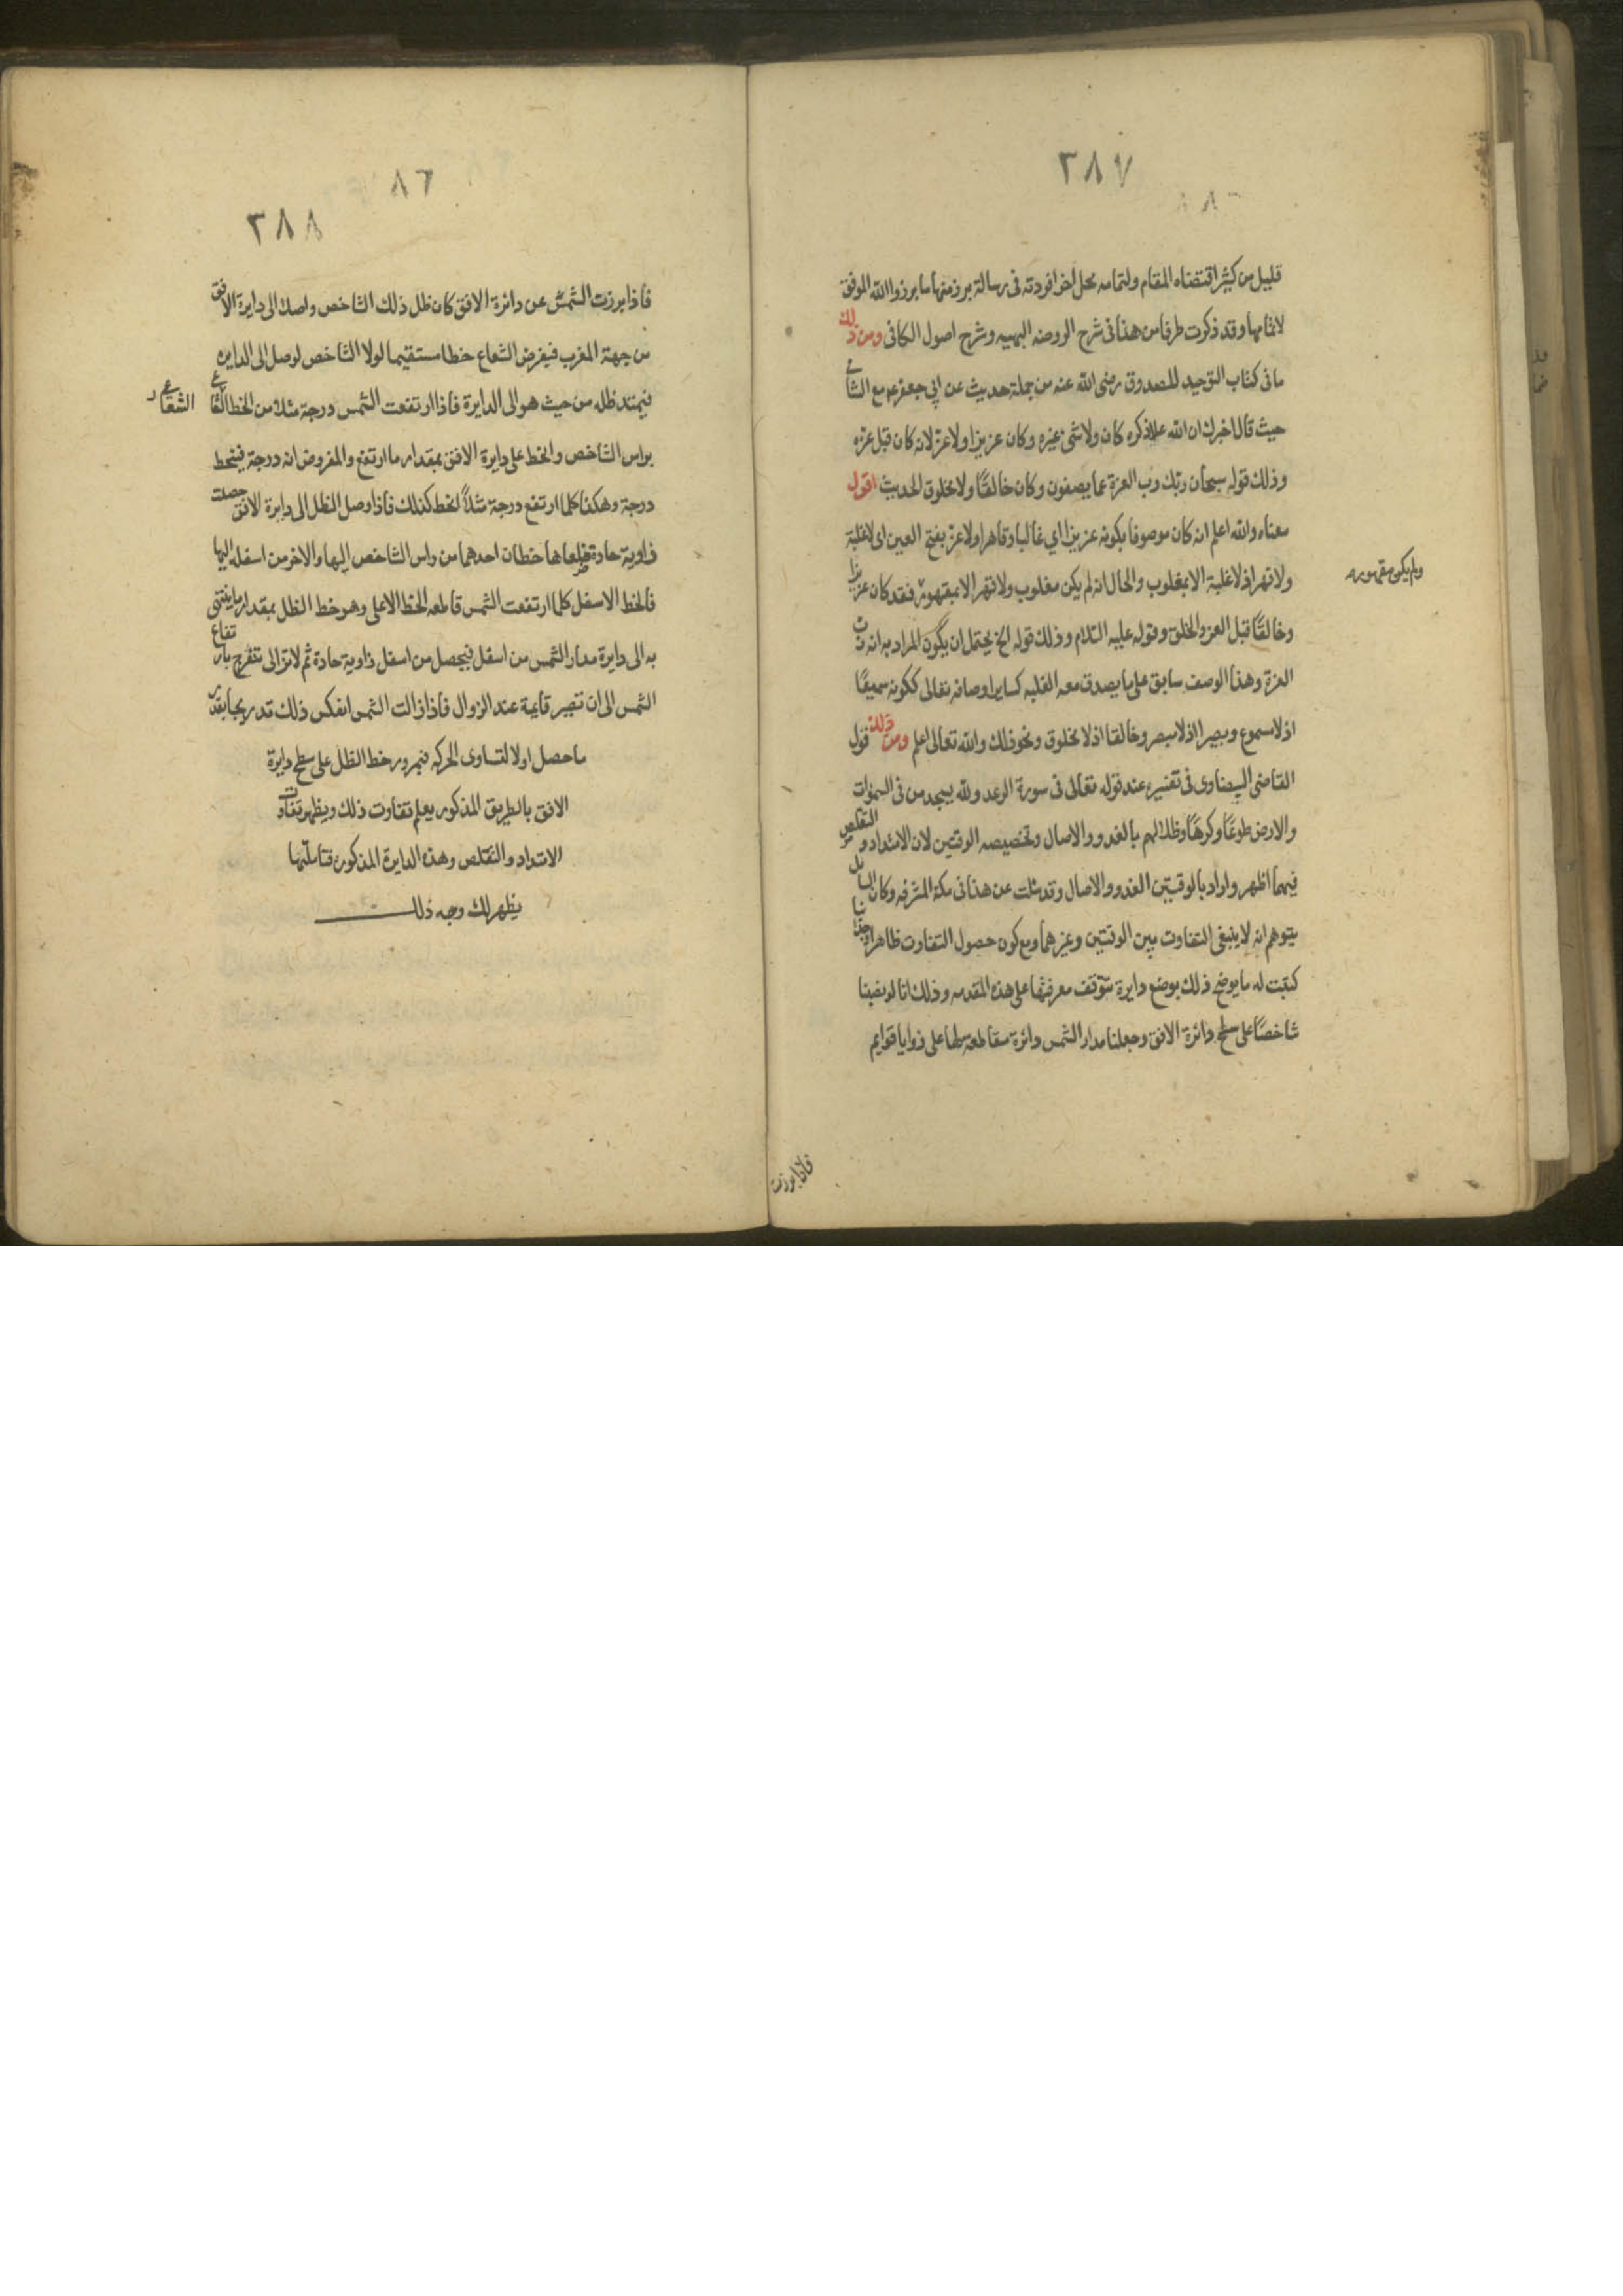 ٢٨٧
قليل من كثير اقتضاه المقام ولتمامه محل اخر افردته فى رسالة برز منها ما برز والله الموفق
لاتمامها وقد ذكرت طرفا من هذا فى شرح الروضه البهيه وشرح اصول الكافى ومن ذلك
ما فى كتاب التوحيد للصدوق رضى الله عنه من جملة حديث عن ابي جعفر ع م مع الشامي
حيث قال اخبرك ان الله علا ذكره كان ولا شئ غيره وكان عزيزا ولا عز لانه كان قبل عزه
وذلك قوله سبحان ربك رب العزة عما يصفون وكان خالقًا ولا مخلوق الحديث اقول
معناه والله اعلم انه كان موصوفا بكونه عزيزا اي غالبا وقاهرا ولا عز بفتح العين اى لا غلبة
ولا قهر اذ لا غلبة الا بمغلوب والحال انه لم يكن مغلوب ولا قهر الا بمقهور فقد كان عزيزا
ولم يكن مقهور
وخالقًا قبل العز والخلق وقوله عليه السلام وذلك قوله الخ يحتمل ان يكون المراد به انه رب
العزة وهذا الوصف سابق على ما يصدق معه الغلبه كساير اوصافه تعالى ككونه سميعًا
اذ لا مسموع وبصيرا اذ لا مبصر وخالقا اذ لا مخلوق ونحو ذلك والله تعالى اعلم ومن ذلك قول
القاضى البيضاوى فى تفسيره عند قوله تعالى فى سورة الرعد ولله يسجد من فى السموات
والارض طوعًا وكرهًا وظلالهم بالغدو والاصال وتخصيصه الوقتين لان الامتداد والتقلص
فيهما اظهر واراد بالوقيتين الغدو والاصال وقد سئلت عن هذا فى مكة المشرفه وكان السايل
يتوهم انه لا ينبغى التفاوت بين الوقتين وغيرهما ومع كون حصول التفاوت ظاهرا وجدانيا
كتبت له ما يوضح ذلك بوضع دايرة تتوقف معرفتها على هذه المقدمه وذلك انا لو نصبنا
شاخصًا على سطح دائرة الافق وجعلنا مدار الشمس دائرة مقاطعه لها على زوايا قوايم
فاذا برزت
٨٦
٢٨٨
فاذا برزت الشمس عن دائرة الافق كان ظل ذلك الشاخص واصلا الى دايرة الافق
من جهة المغرب فيفرض الشعاع خطا مستقيما لولا الشاخص لوصل الى الدايره
فيمتد ظله من حيث هو الى الدايرة فاذا ارتفعت الشمس درجة مثلا من الخط الشعاع
الشعاع
براس الشاخص والخط على دايرة الافق بمقدار ما ارتفع والمفروض انه درجة فينحط
درجة وهكذا كلما ارتفع درجة مثلاً انحط كذلك فاذا وصل الظل الى دايرة الافق حصلت
زاوية حادة ضلعاها خطان احدهما من راس الشاخص اليها والاخر من اسفله اليها
فالخط الاسفل كلما ارتفعت الشمس قاطعه الخط الاعلى وهو خط الظل بمقدار ما ينتهى
به الى دايرة مدار الشمس من اسفل فيحصل من اسفل زاوية حادة ثم لا تزال تنفرج بارتفاع
الشمس الى ان تصير قايمة عند الزوال فاذا زالت الشمس انعكس ذلك تدريجا بقدر
ما حصل اولا لتساوى الحركه فبمرور خط الظل على سطح دايرة
الافق بالطريق المذكور يعلم تفاوت ذلك ويظهر تفاوت
الامتداد والتقلص وهذه الدايرة المذكوره فتاملها
يظهر لك وجه ذلك